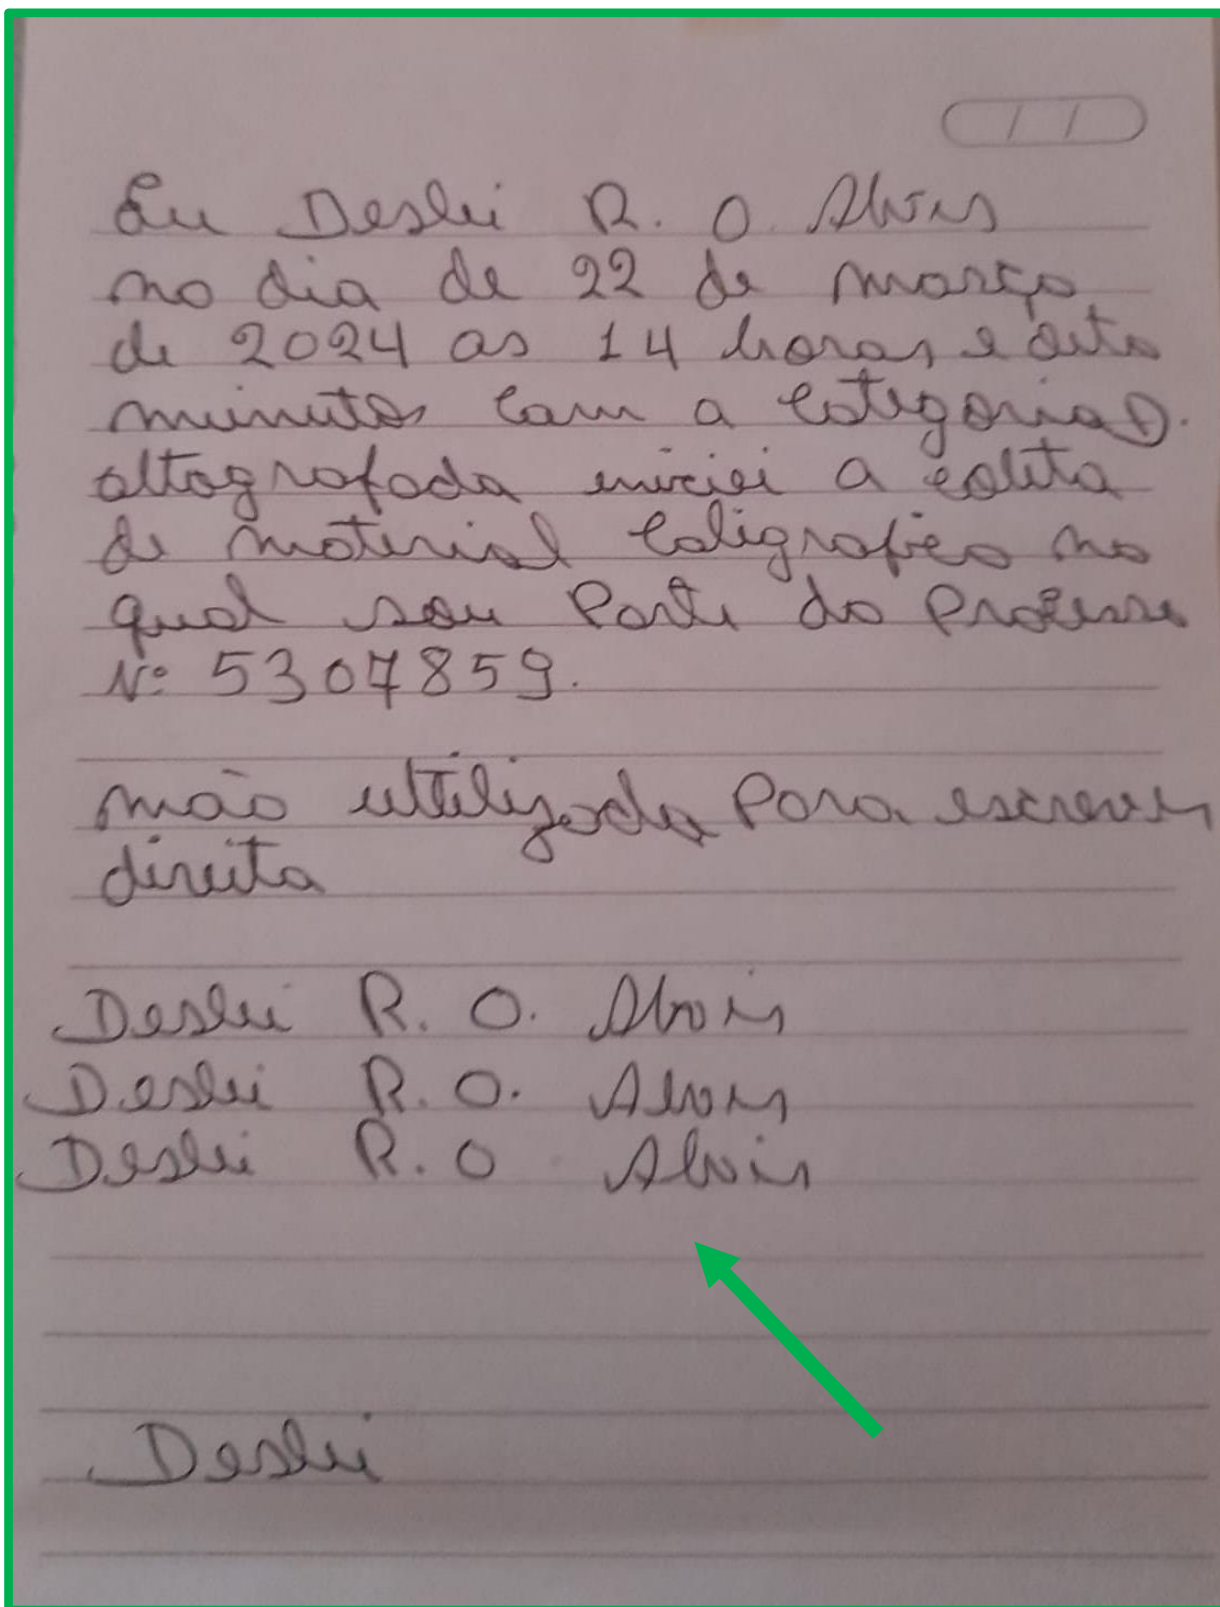 / /
Eu Deslei R. O. Alves
no dia de 22 de março
de 2024 as 14 horas e oito
minutos com a categoria D.
altografada iniciei a coleta
de material caligrafico no
qual sou Parte do Processo
Nº 5307859.
mão utilizada Para escrever
direita
Deslei R. O. Alvis
Deslei R. O. Alvis
Deslei R. O Alvis
Deslei